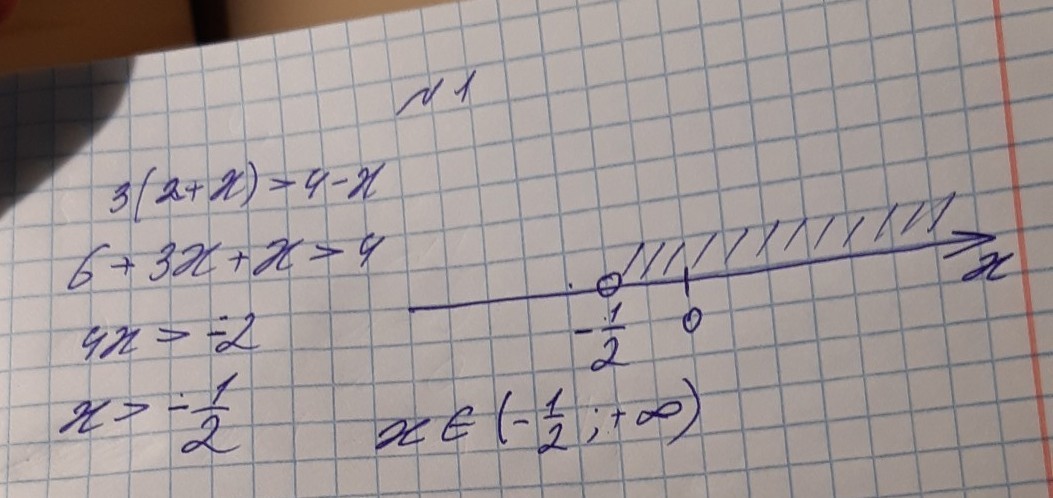 №1
3(2+x)>4-x
6+3x+x>4
4x>-2
x>-1/2
-1/2 0 x
x∈(-1/2;+∞)